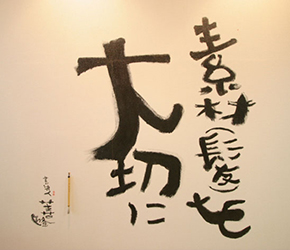 素材(髪)を
大切に